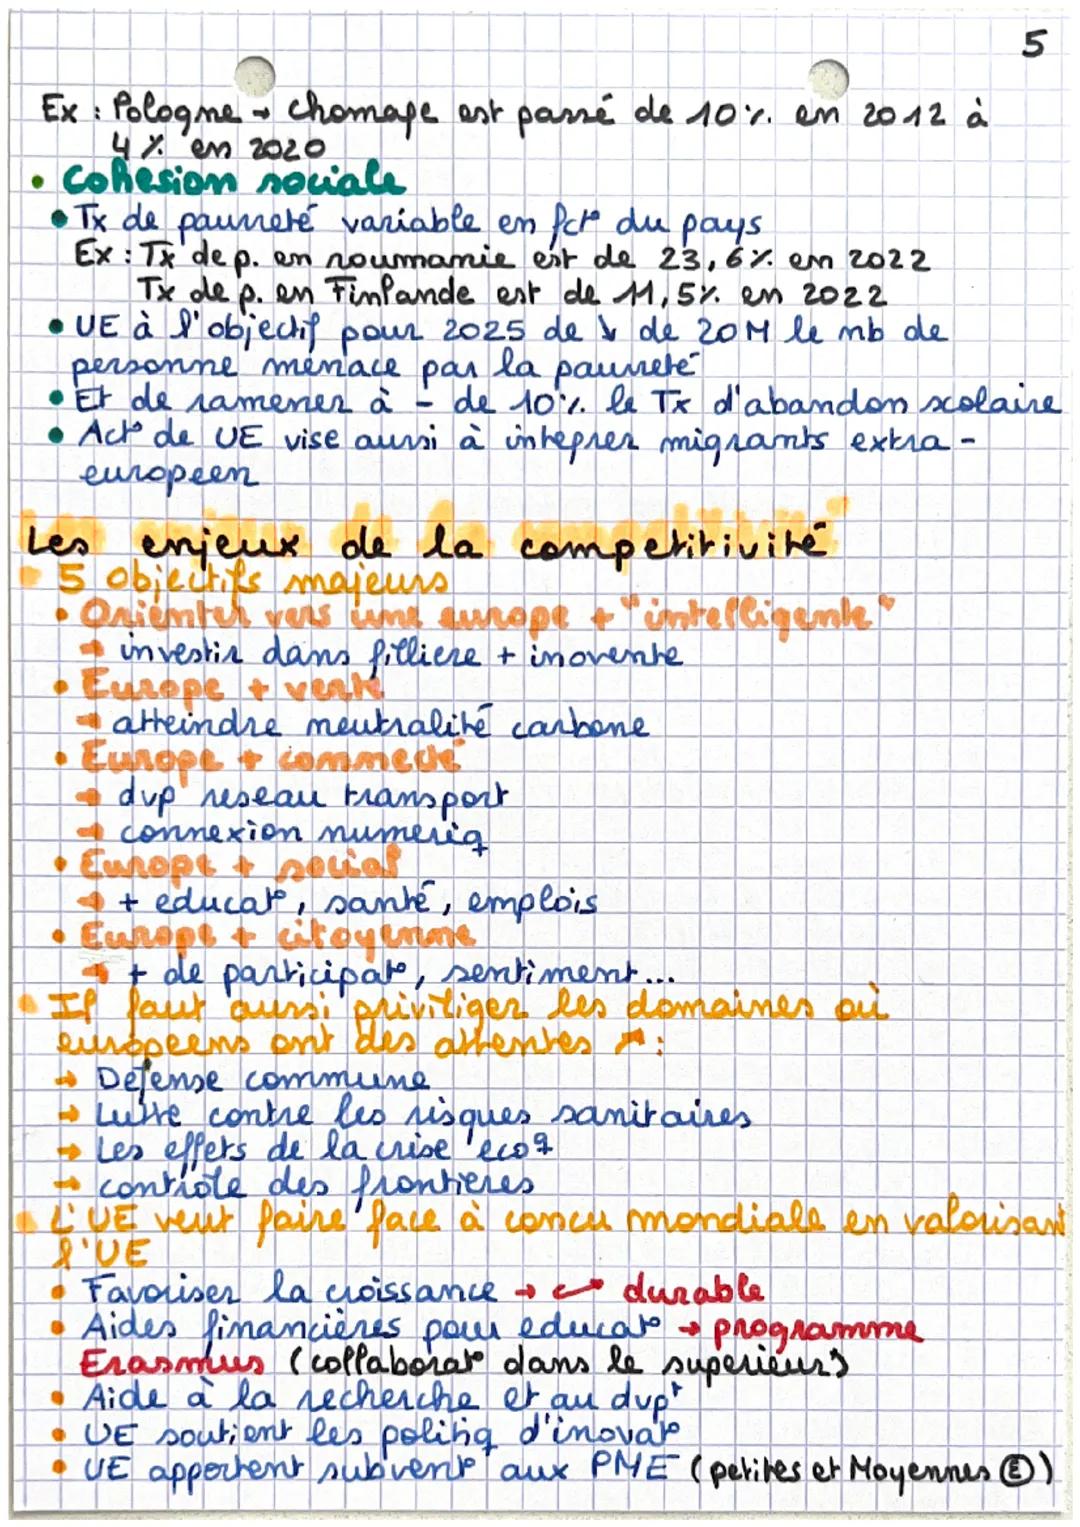 5
Ex : Pologne → chomage est passé de 10% en 2012 à
4% en 2020
• Cohesion sociale
• Tx de pauvreté variable en fct° du pays
Ex : Tx de p. en roumanie est de 23,6% en 2022
Tx de p. en Finlande est de 11,5% en 2022
• UE à l'objectif pour 2025 de ↘ de 20M le nb de
personne menace par la pauvreté
• Et de ramener à - de 10% le Tx d'abandon scolaire
• Act° de UE vise aussi à integrer migrants extra-
europeen
Les enjeux de la competitivité
• 5 objectifs majeurs
• Orienter vers une europe + "intelligente"
→ investir dans filliere + inovente
• Europe + verte
→ atteindre neutralité carbone
• Europe + connecté
→ dvp reseau transport
→ connexion numeriq
• Europe + social
→ + educat°, santé, emplois
• Europe + citoyenne
→ + de participat°, sentiment...
• Il faut aussi priviliger les domaines où
europeens ont des attentes ↗ :
→ Defense commune
→ Lutte contre les risques sanitaires
→ Les effets de la crise ecoq
→ controle des frontieres
• L'UE veut faire face à concu mondiale en valorisant
l'UE
• Favoriser la croissance → c° durable
• Aides financières pour educat° → programme
Erasmus (collaborat° dans le superieur)
• Aide à la recherche et au dvpt
• UE soutient les politiq d'inovat°
• UE apportent subvent° aux PME (petites et Moyennes Ⓔ)